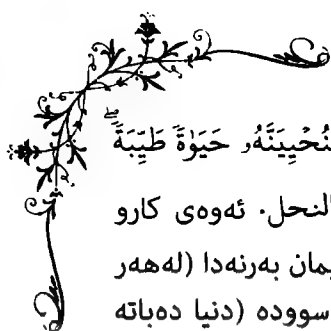 فَلَنُحْيِيَنَّهُۥ حَيَوٰةً طَيِّبَةً ۖ
النحل. ئەوەی کارو
یمان بەرنەدا (لەهەر
سوودە (دنیا دەباتە